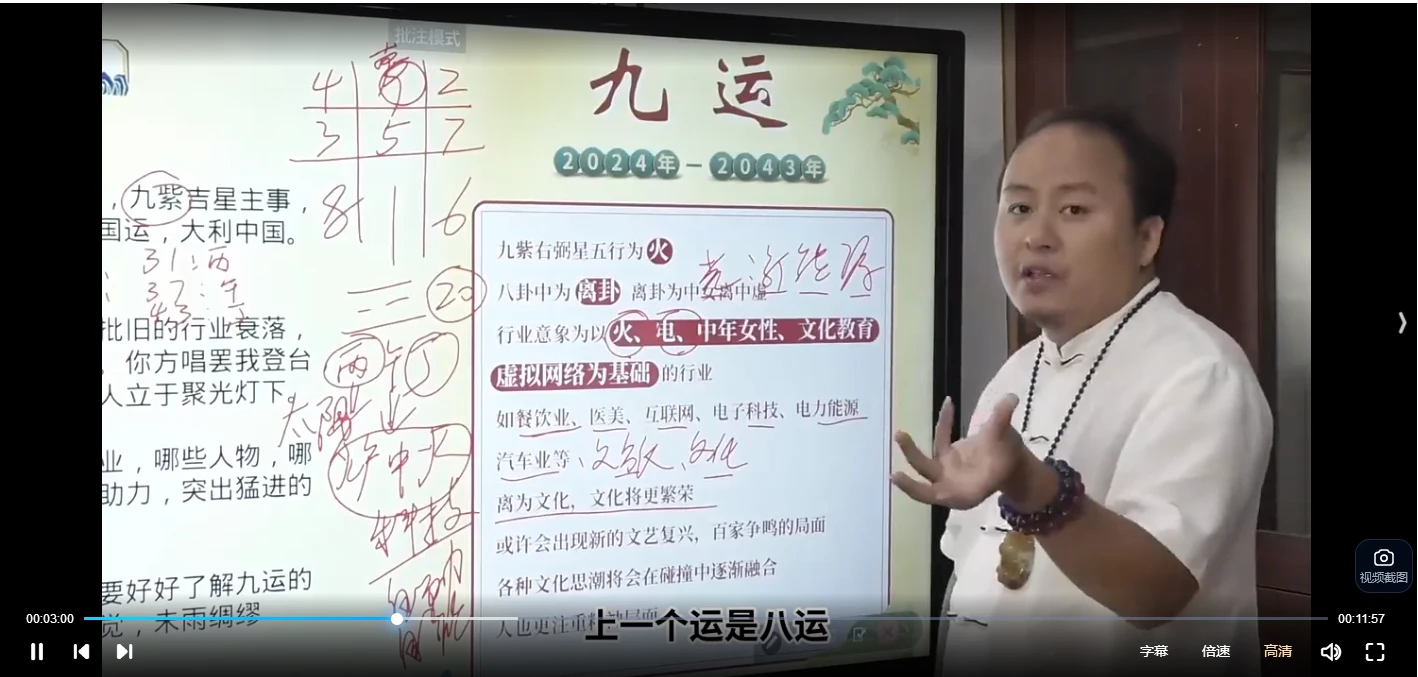 批注模式
九 运
2024年－2043年
4 2
3 5 7
8 1 6
，九紫吉星主事，
国运，大利中国。
31：丙
37：午
43：丁
三 二 20
丙 午 丁
批旧的行业衰落，
，你方唱罢我登台
人立于聚光灯下。
太阳
业，哪些人物，哪
助力，突出猛进的
炉中火
科技
要好好了解九运的
觉，未雨绸缪
九紫右弼星五行为火
八卦中为离卦 离卦为中女离中虚
能源
行业意象为以火、电、中年女性、文化教育
虚拟网络为基础的行业
如餐饮业、医美、互联网、电子科技、电力能源
汽车业等、文化
离为文化，文化将更繁荣
或许会出现新的文艺复兴，百家争鸣的局面
各种文化思潮将会在碰撞中逐渐融合
人也更注重精神层面
上一个运是八运
视频截图
00:03:00
00:11:57
字幕 倍速 高清